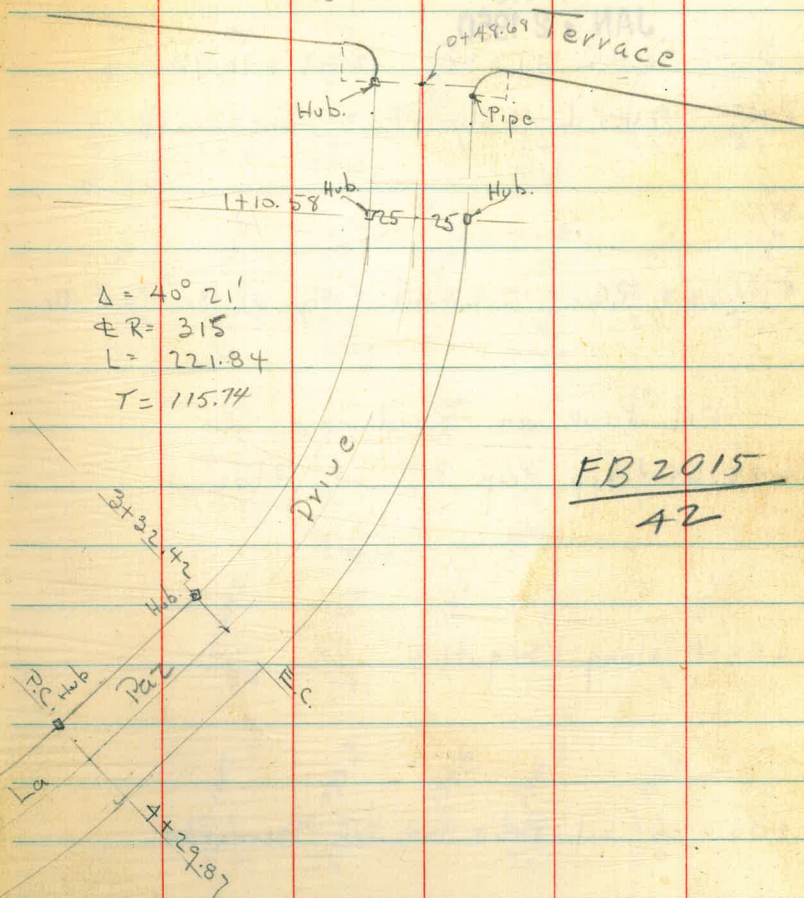 0+49.69 Terrace
Hub.
Pipe
1+10.58 Hub. Hub.
25 25
Δ = 40° 21'
₵ R = 315
L = 221.84
T = 115.74
Drive
FB 2015
42
3+32.42
Hub.
P.C. Hub
Paz
E.C.
La
4+29.87